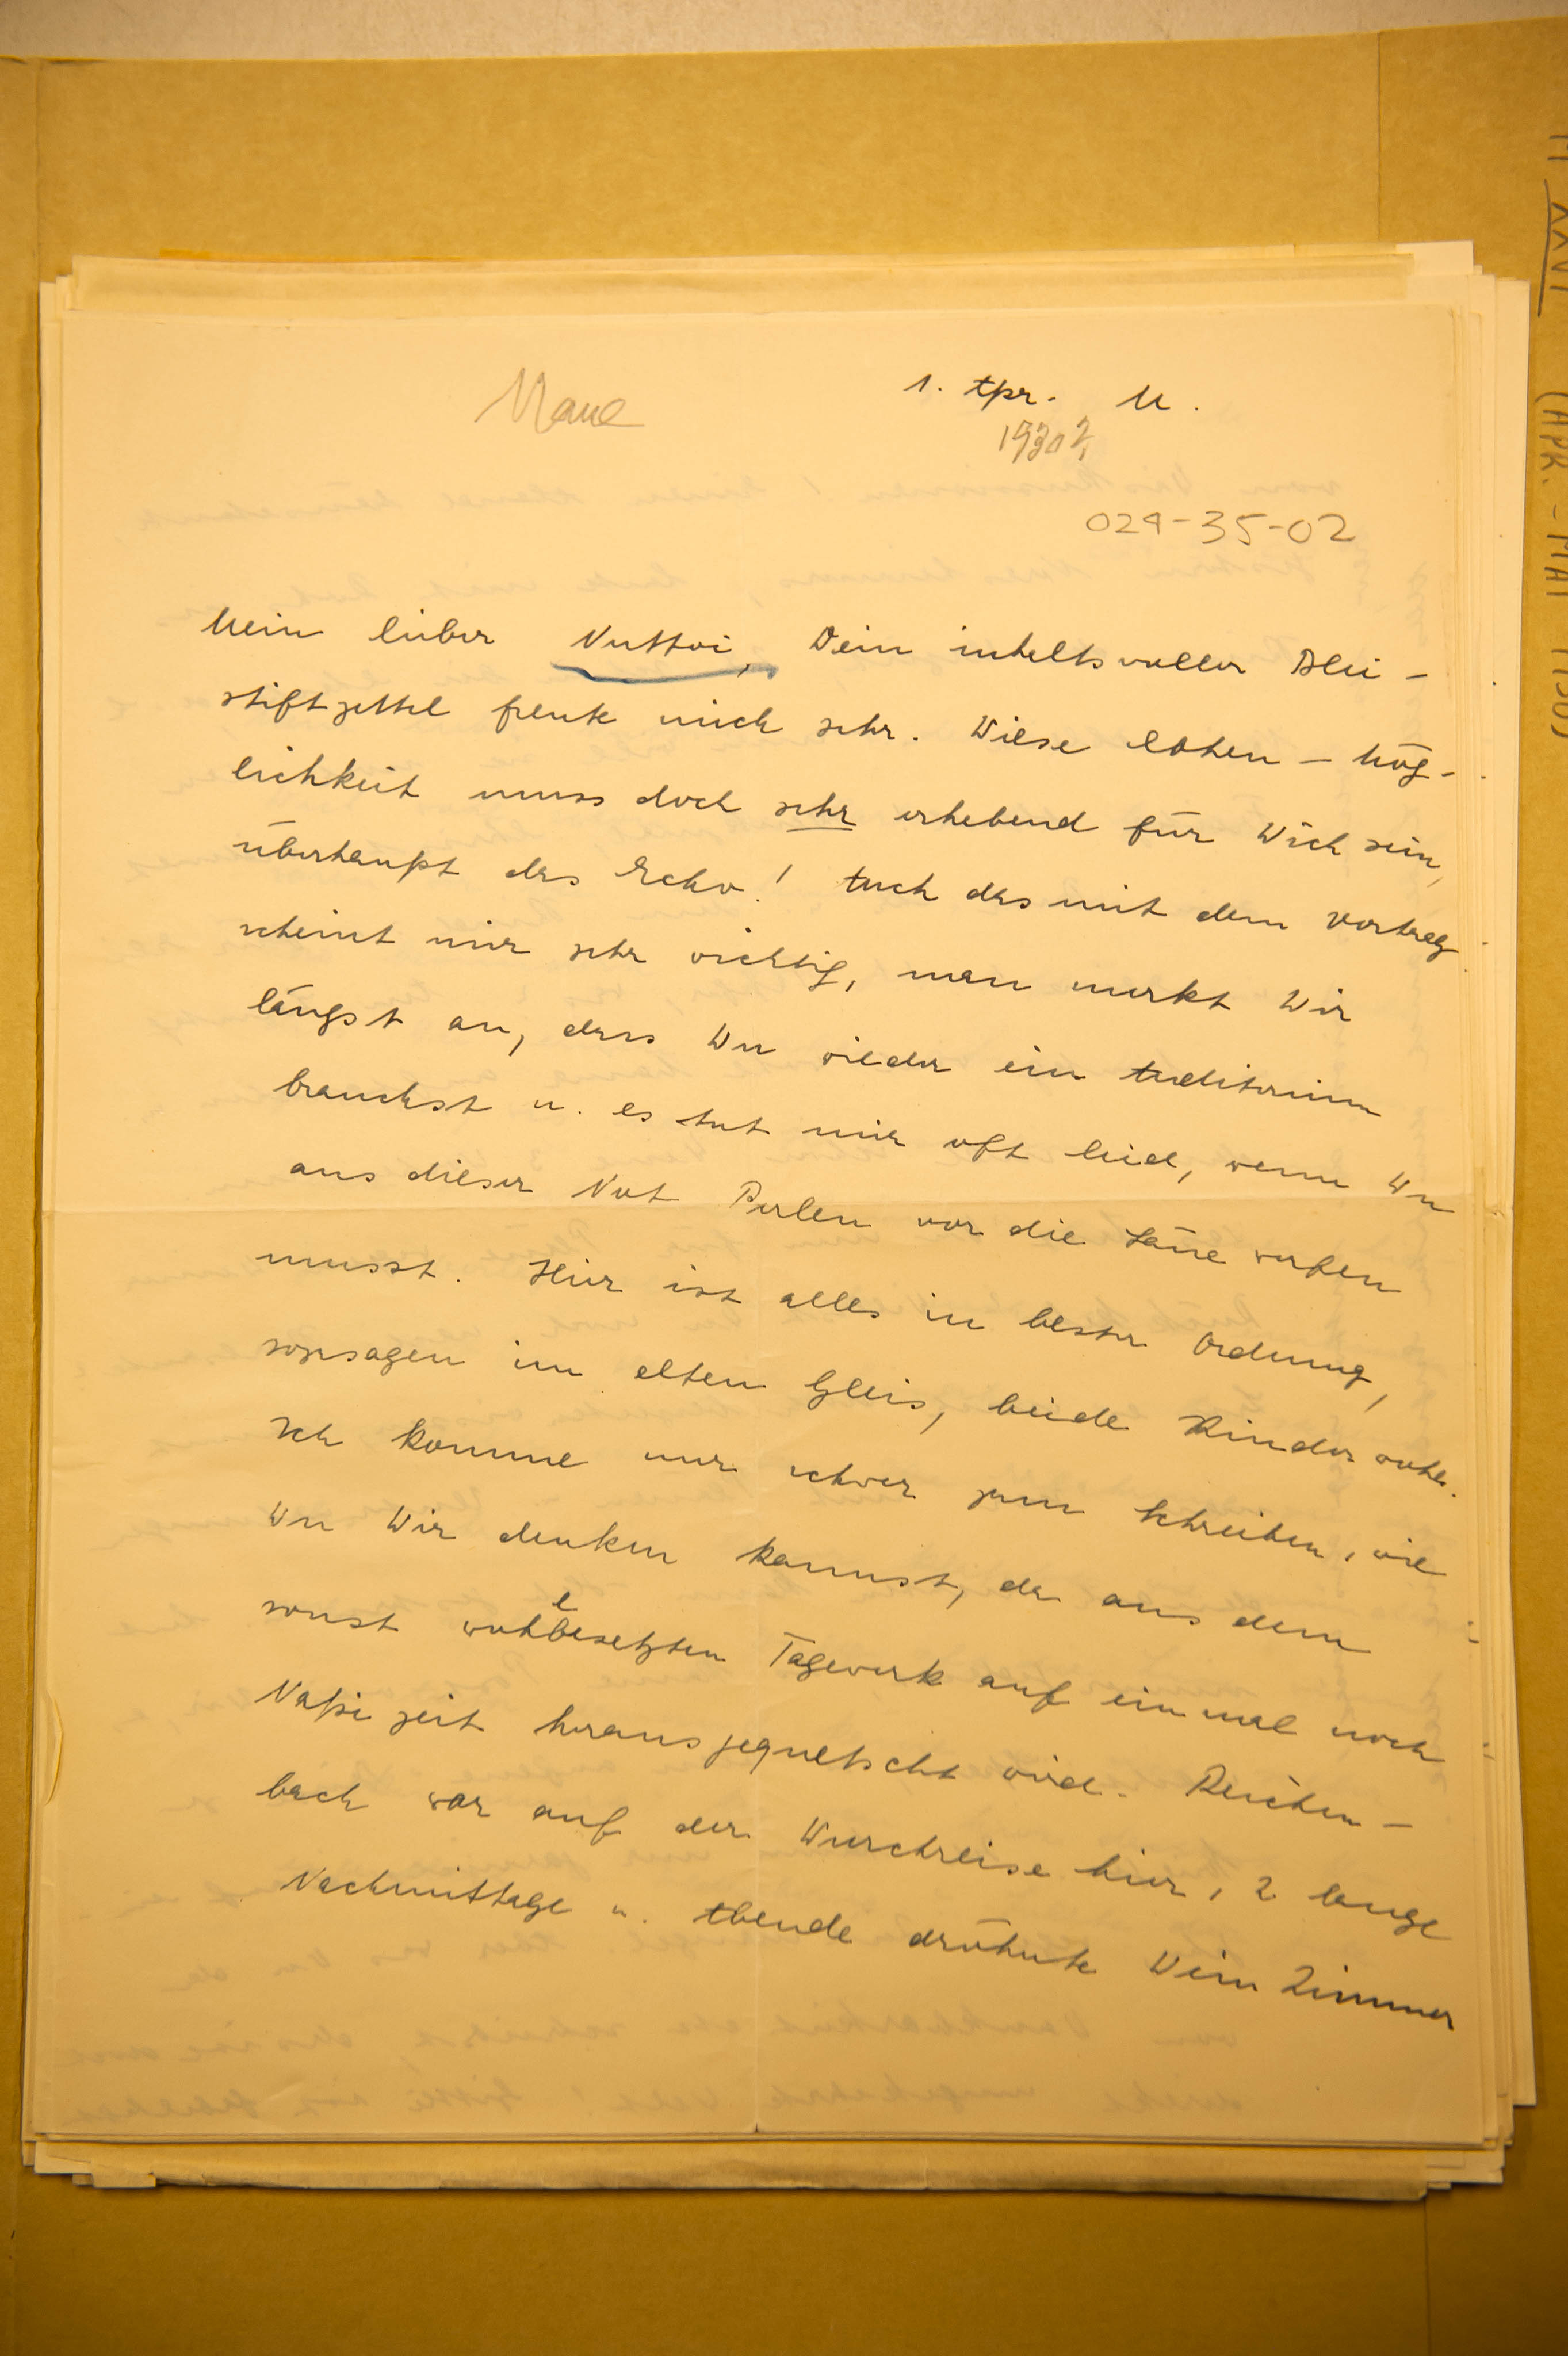 Maue
1. Apr. M.
1930?
024-35-02
Mein lieber Nuttoi, Dein inhaltsvoller Blei-
stiftzettel freute mich sehr. Diese Cohen-Mög-
lichkeit muss doch sehr erhebend für Dich sein,
überhaupt das Echo! Auch das mit dem Vortrag
scheint mir sehr wichtig, man merkt Dir
längst an, dass Du wieder ein Auditorium
brauchst u. es tut mir oft leid, wenn Du
aus dieser Not Perlen vor die Säue werfen
musst. Hier ist alles in bester Ordnung,
sozusagen im alten Gleis, beide Kinder wohl.
Ich komme nur schwer zum Schreiben, wie
Du Dir denken kannst, da aus dem
sonst wohlbesetzten Tagewerk auf einmal noch
Napizeit herausgequetscht wird. Reichen-
bach war auf der Durchreise hier, 2 lange
Nachmittage u. Abende dröhnte Dein Zimmer
M XXVI (APR.-MAI 1930)